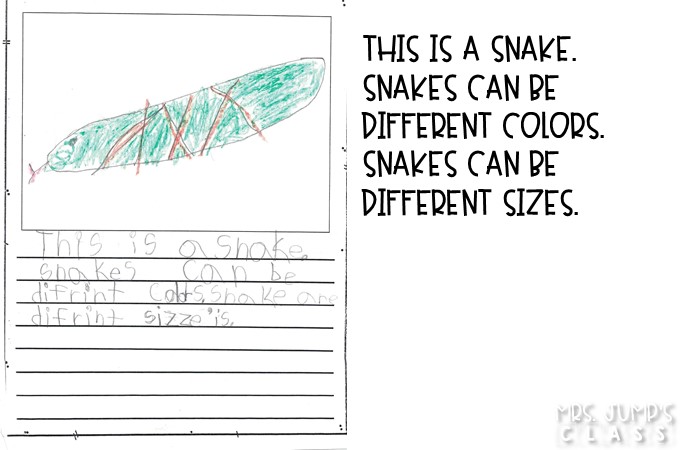 This is a snake.
snakes can be
difrint colors. snake are
difrint sizze is.
THIS IS A SNAKE.
SNAKES CAN BE
DIFFERENT COLORS.
SNAKES CAN BE
DIFFERENT SIZES.
MRS. JUMP'S
CLASS